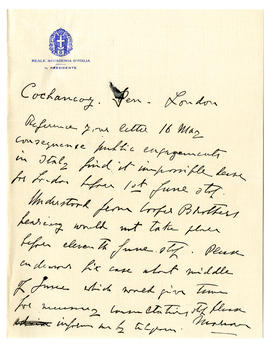 REALE ACCADEMIA D'ITALIA
IL PRESIDENTE
Cochancoy. Pen. London
Reference your letter 16 May
consequence public engagements
in Italy find it impossible leave
for London before 1st June stop.
Understood from Cooper Brothers
hearing would not take place
before eleventh June stop. Please
endeavour fix case about middle
of June which would give time
for necessary consultations stop please
inform me by telegram.